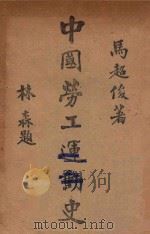 馬超俊著
中國勞工運動史
林森題